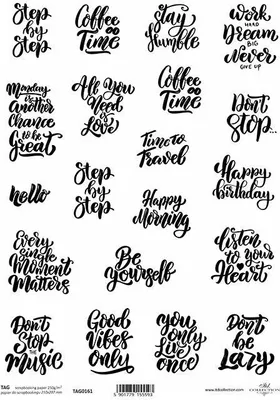 Step
by
Step
Coffee
Time
Stay
Humble
Work
HARD
Dream
BIG
Never
GIVE UP
Monday
is
another
Chance
to be
Great
All You
Need
is
Love
Coffee
Time
Don't
Stop...
Time to
Travel
hello
Step
by
Step
Happy
Morning
Happy
birthday
Every
single
Moment
Matters
Be
Yourself
listen
to your
Heart
Don't
Stop
the
MUSIC
Good
Vibes
only
you
only
Live
once
Don't
be
Lazy
TAG scrapbooking paper 250g/m²
TAG0161
5 901779 155593
COLLECTION